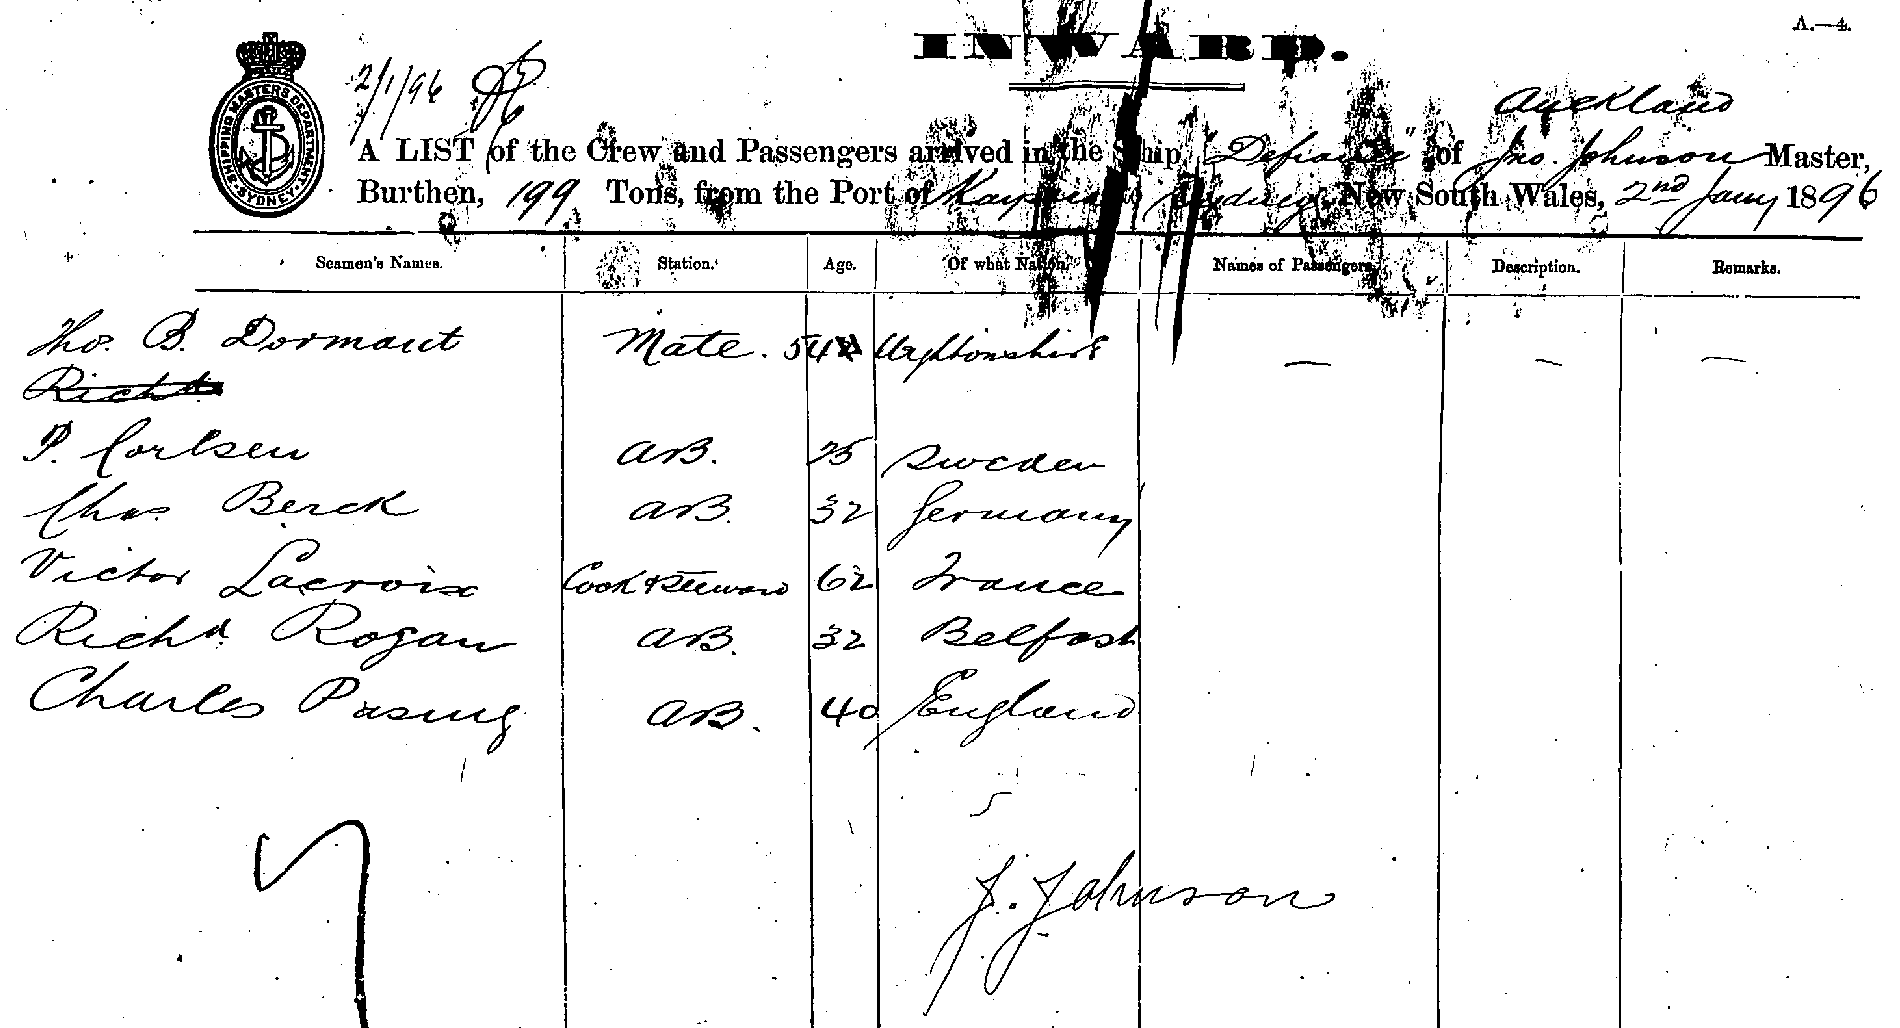 INWARD.
A.—4.
SHIPPING MASTERS DEPARTMENT SYDNEY
2/1/96
Auckland
A LIST of the Crew and Passengers arrived in the Ship "Defiance" of Jno. Johnson Master,
Burthen, 199 Tons, from the Port of to Sydney New South Wales, 2nd Jany 1896
Seamen's Names. Station. Age. Of what Nation. Names of Passengers. Description. Remarks.
Thos. B. Dormant Mate. 54 — — —
Richd
P. Carlsen AB. 25 Sweden
Chas. Berck AB. 32 Germany
Victor Lacroix Cook & Steward 62 France
Richd Rogan AB. 32 Belfast
Charles AB. 40 England
J. Johnson